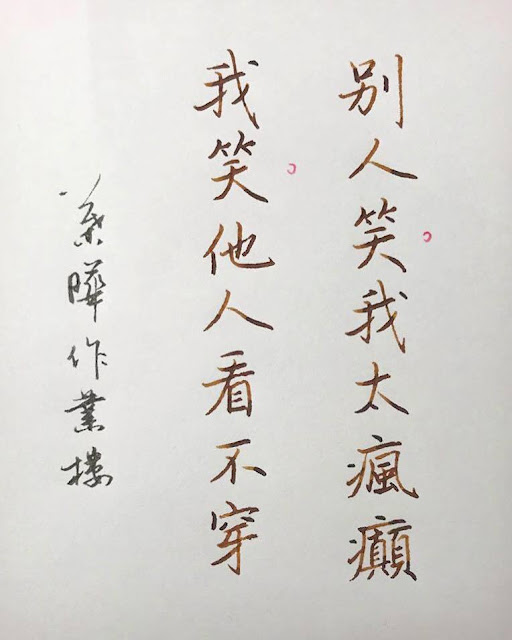 別人笑我太瘋癲
我笑他人看不穿
葉曄作業樓